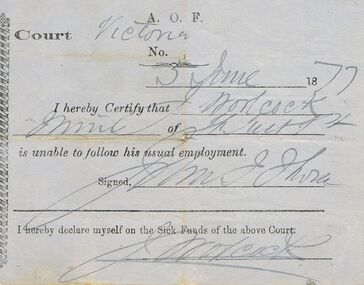 A. O. F.
Court Victoria
No.
5 June 1877
I hereby Certify that J Woolcock
of
is unable to follow his usual employment.
Signed, John J
I hereby declare myself on the Sick Funds of the above Court.
J Woolcock